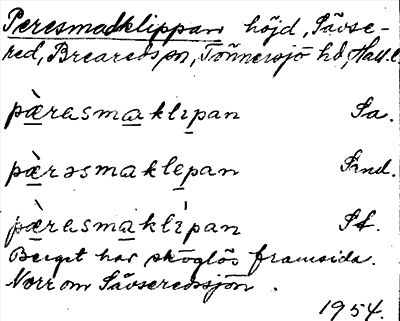 Peresmadklippan höjd, Sävse-
red, Breareds sn, Tönnersjö hd, Hall. l.
pæ̀rasmaklıpan Sa.
pæ̀rəsmaklepan Frnd.
pæ̀rasmaklı́pan Sf.
Berget har skoglös framsida.
Norr om Sävseredssjön.
1954.